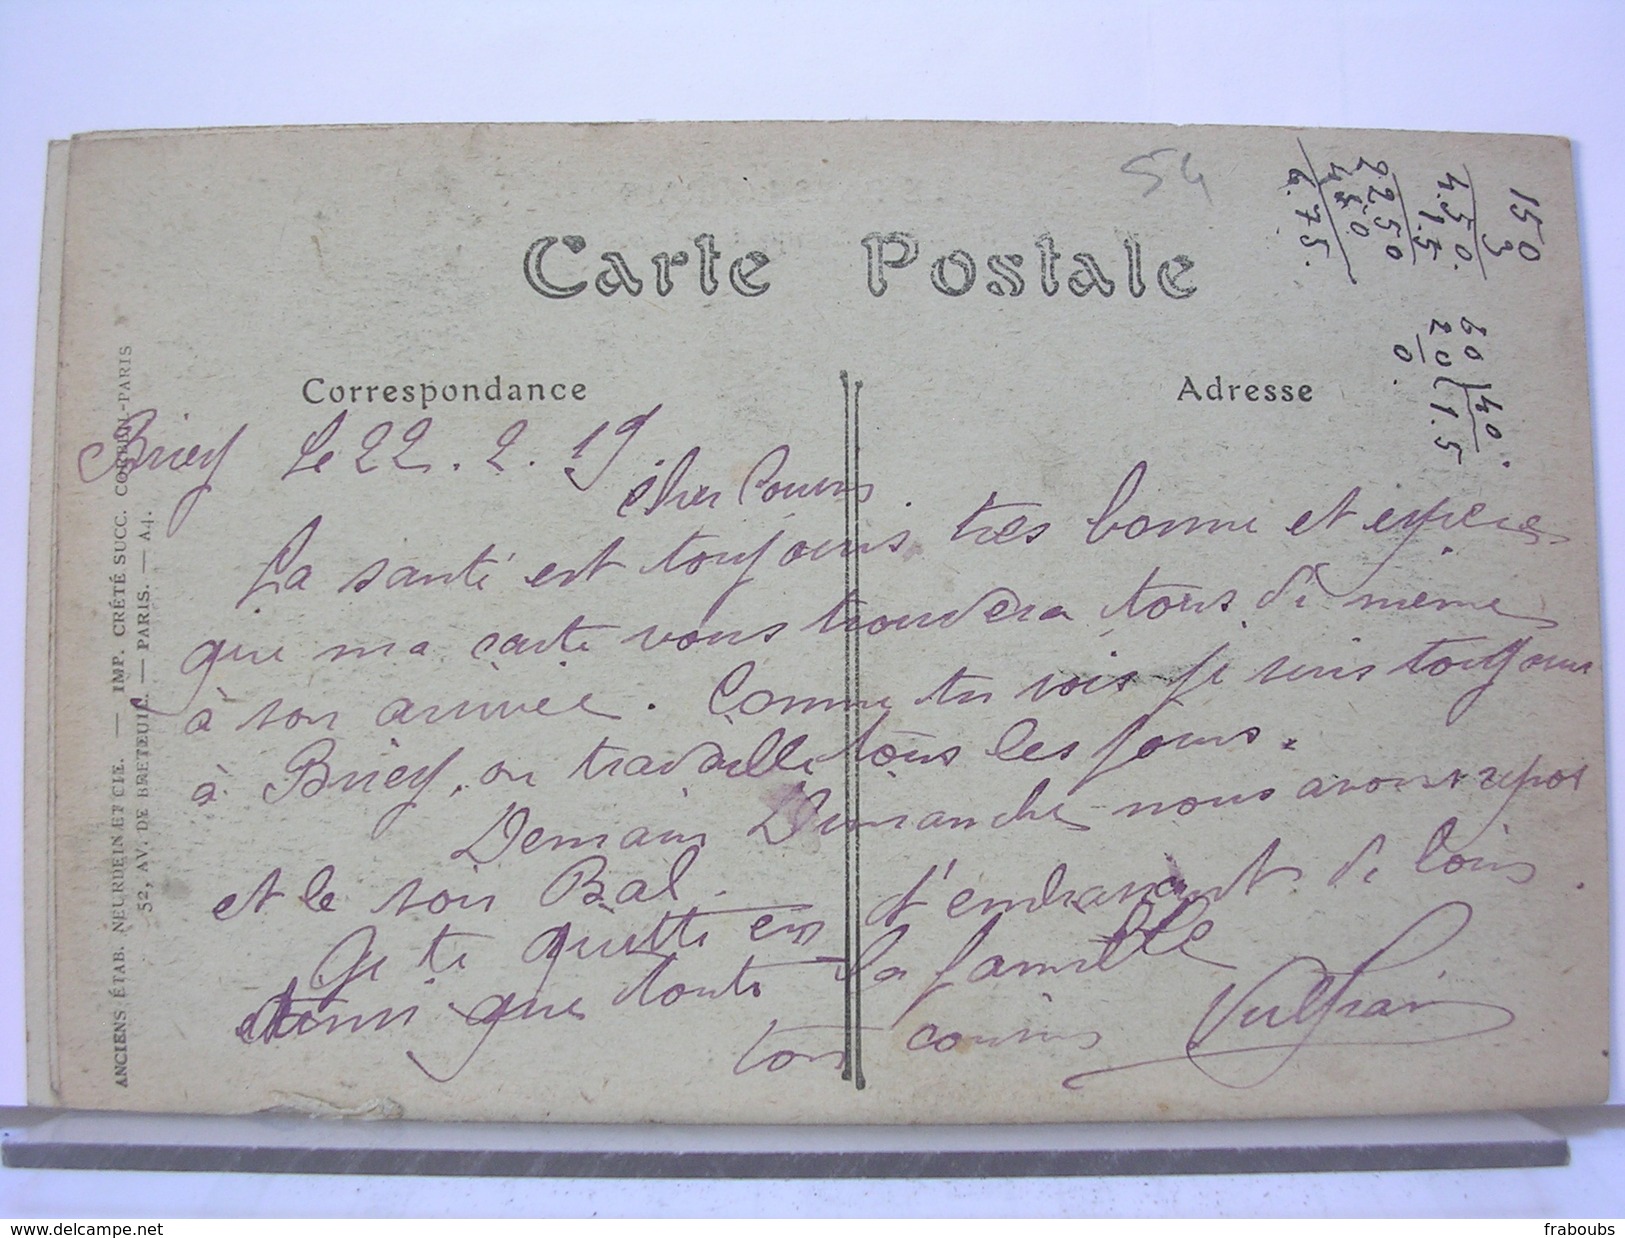 54
Carte Postale
Correspondance
Adresse
150
3
4.50.
1.5
2250
450
6.75.
60 40.
20 1.5
0.
Briey le 22.2.19.
Cher Cousin
La santé est toujours très bonne et espère
que ma carte vous trouvera tous de même
à son arrivée. Comme tu vois je suis toujours
à Briey, on travaille tous les jours.
Demain Dimanche nous avons repos
et le soir Bal.
Je te quitte en t'embrassant de loin.
ainsi que toute la famille
ton cousin Vulfran
ANCIENS ÉTAB. NEURDEIN ET CIE. — IMP. CRÉTÉ SUCC. CORBEIL-PARIS
52, AV. DE BRETEUIL. — PARIS. — A4.
http://www.delcampe.net
fraboubs